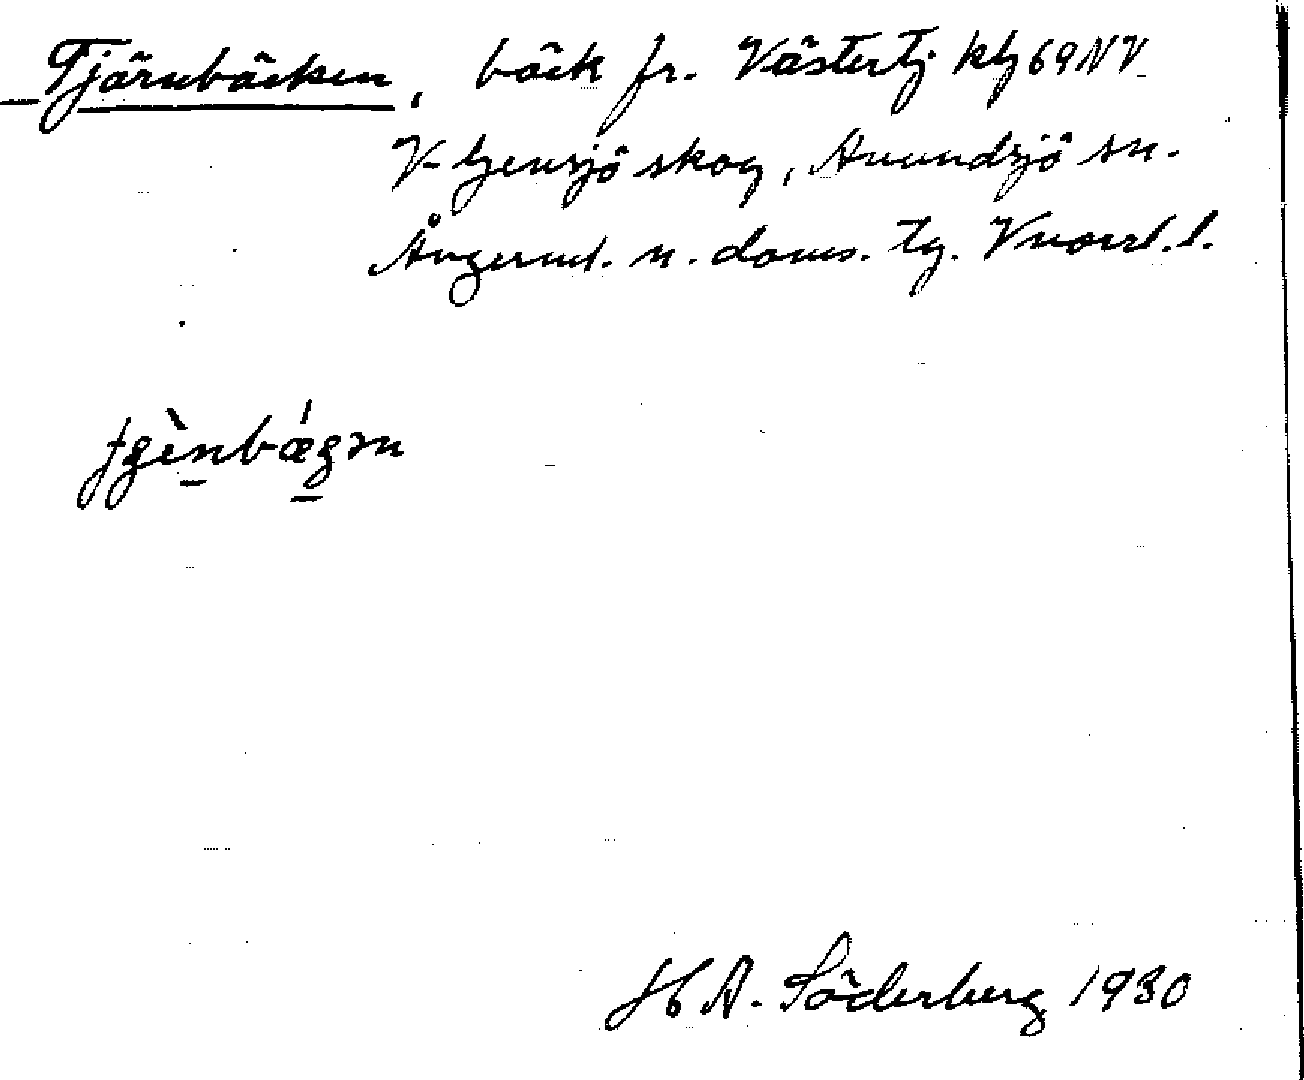 Tjärnbäcken, bäck fr. Västertj kbl 69 NV
V-Gensjö skog, Anundsjö sn.
Ångerml. n. doms. tg. Vnorrl. l.
H A. Söderberg 1930